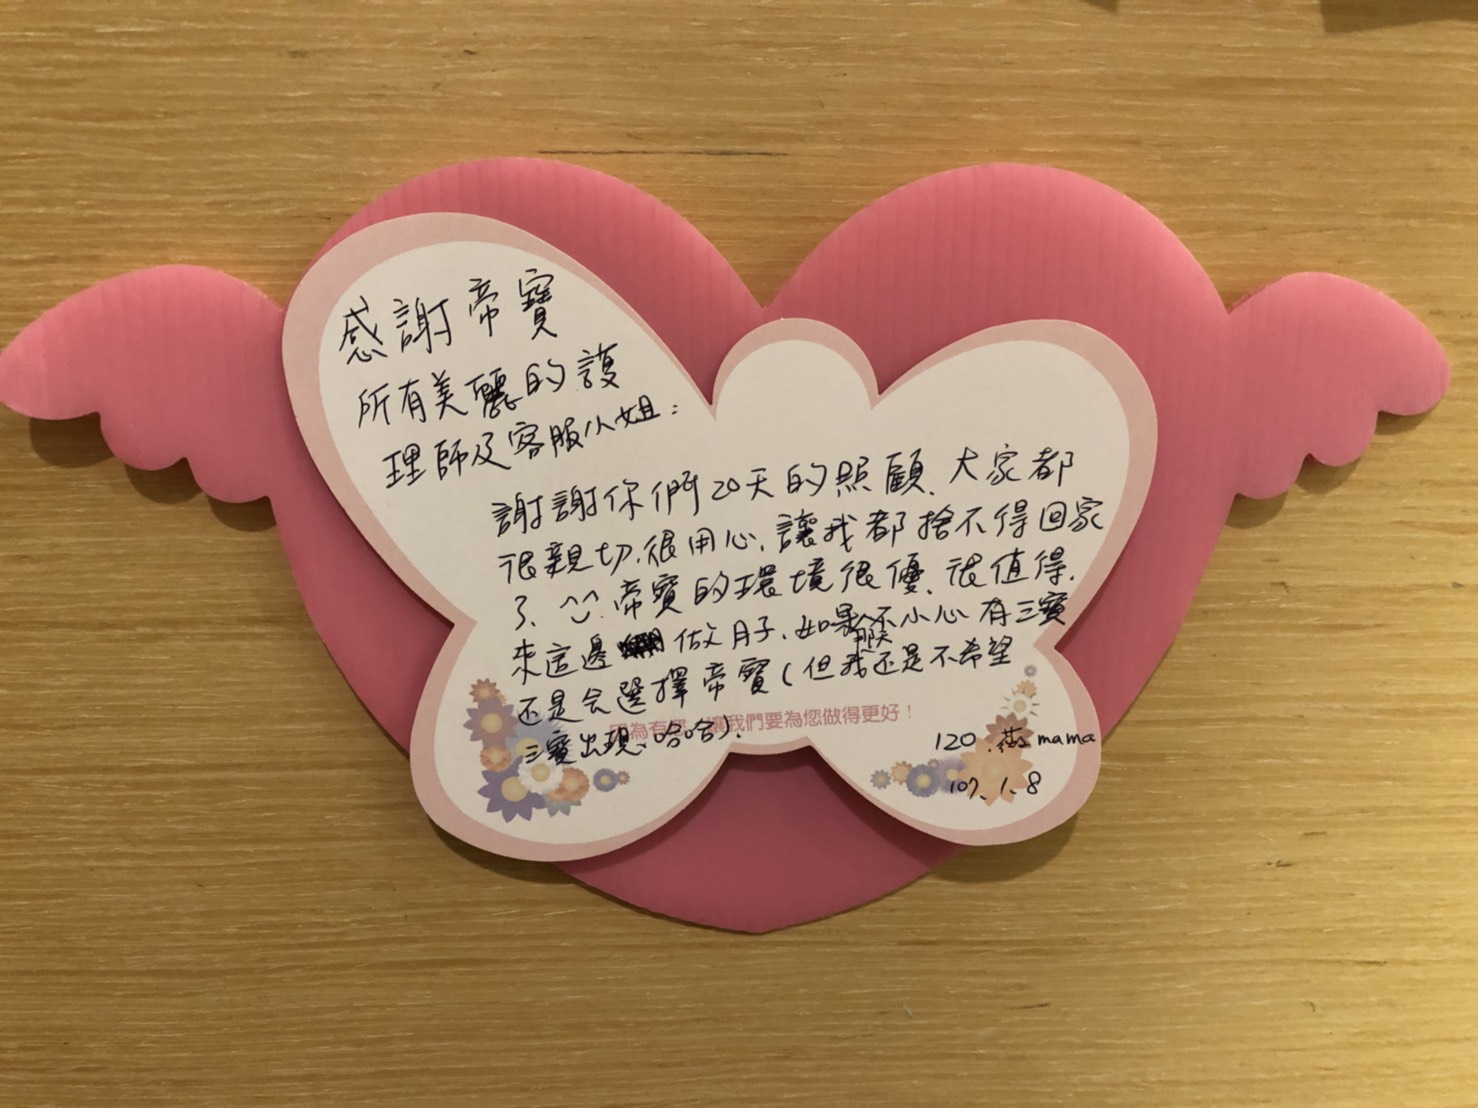 感謝帝寶
所有美麗的護
理師及客服小姐:
謝謝你們20天的照顧、大家都
很親切.很用心、讓我都捨不得回家
了、^^.帝寶的環境很優、很值得.
來這邊做月子.如果不小心有三寶
還是会選擇帝寶(但我還是不希望
三寶出現、哈哈).
因為有您,讓我們要為您做得更好!
120. mama
107.1.8